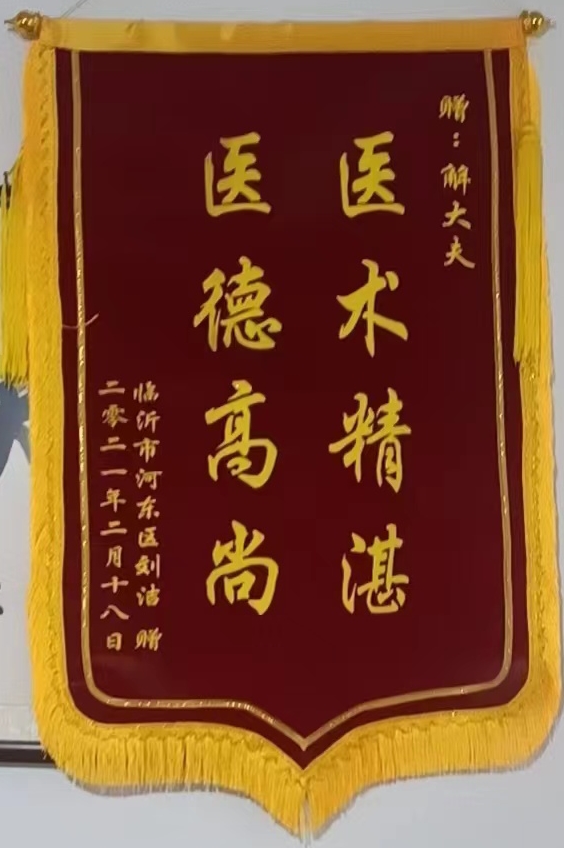 赠：解大夫
医术精湛
医德高尚
临沂市河东区刘洁 赠
二零二一年二月十八日